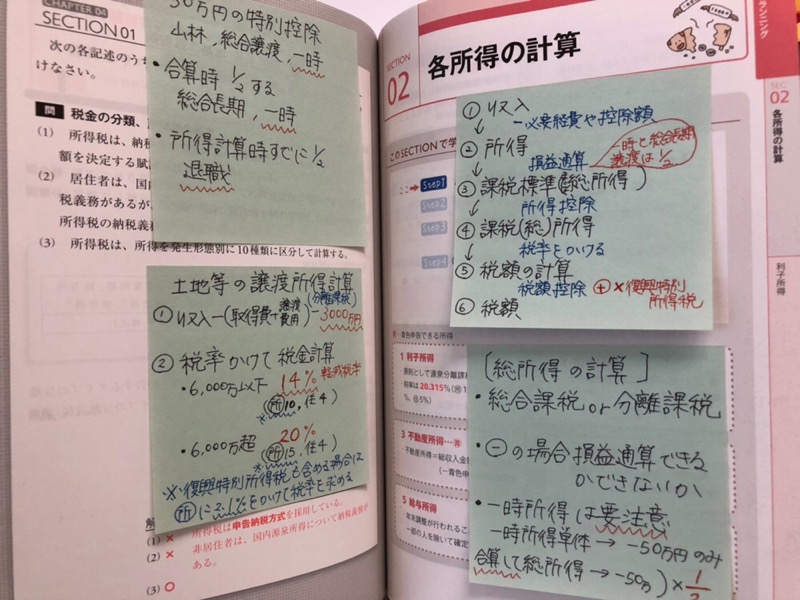 CHAPTER 04
SECTION 01
次の各記述のうち
けなさい。
問 税金の分類、
(1) 所得税は、納税
額を決定する賦
(2) 居住者は、国内
税義務があるが
所得税の納税義務
(3) 所得税は、所得を発生形態別に10種類に区分して計算する。
50万円の特別控除
山林、総合譲渡、一時
・合算時 1/2する
総合長期、一時
・所得計算時すでに1/2
退職
土地等の譲渡所得計算
(分離課税)
①収入−(取得費+譲渡費用)−3000万円
②税率かけて税金計算
・6,000万以下 14% 軽減税率
(所10, 住4)
・6,000万超 20%
(所15, 住4)
※・復興特別所得税も含める場合は
所に2.1%をかけて税率を求める
所得税は申告納税方式を採用している。
(1) ×
(2) × 非居住者は、国内源泉所得について納税義務が
ある。
(3) ○
SECTION 02 各所得の計算
このSECTIONで学
①収入
↓ −必要経費や控除額
②所得
↓ 損益通算 一時と総合長期譲渡は1/2
③課税標準(総所得)
↓ 所得控除
④課税(総)所得
↓ 税率をかける
⑤税額の計算
↓ 税額控除 ⊕×復興特別所得税
⑥税額
ここ→ Step1
Step2
Step3
Step4
青色申告できる所得
1 利子所得
・原則として源泉分離課税
・税率は20.315%
5%)
3 不動産所得…
・不動産所得=総収入金
(−青色申
5 給与所得
・年末調整が行われること
一部の人を除いて確定
[総所得の計算]
・総合課税or分離課税
・⊖の場合損益通算できる
かできないか
・一時所得は要注意
一時所得単体→−50万円のみ
合算して総所得→−50万)×1/2
ランニング
SEC. 02
各所得の計算
利子所得